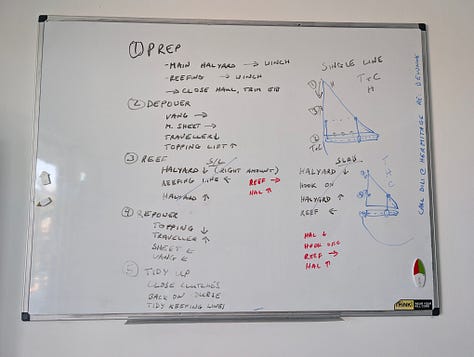 ① PREP
- MAIN HALYARD → WINCH
- REEFING → WINCH
→ CLOSE HAUL, TRIM
② DEPOWER
VANG →
M. SHEET →
TRAVELLER ↓
TOPPING LIFT ↑
③ REEF S/L
HALYARD ↓ (RIGHT AMOUNT)
REEFING LINE ← REEF →
HALYARD ↑ HAL ↑
④ REPOWER
TOPPING ↓
TRAVELLER ↑
SHEET ←
VANG ←
⑤ TIDY UP
CLOSE CLUTCHES
BACK ON
TIDY REEFING LINES
SINGLE LINE
T + C
SLAB
HALYARD ↓
HOOK ON
HALYARD ↑
REEF ←
HAL ↓
HOOK OFF
REEF →
HAL ↑
T + C
HERMITAGE
THINK!